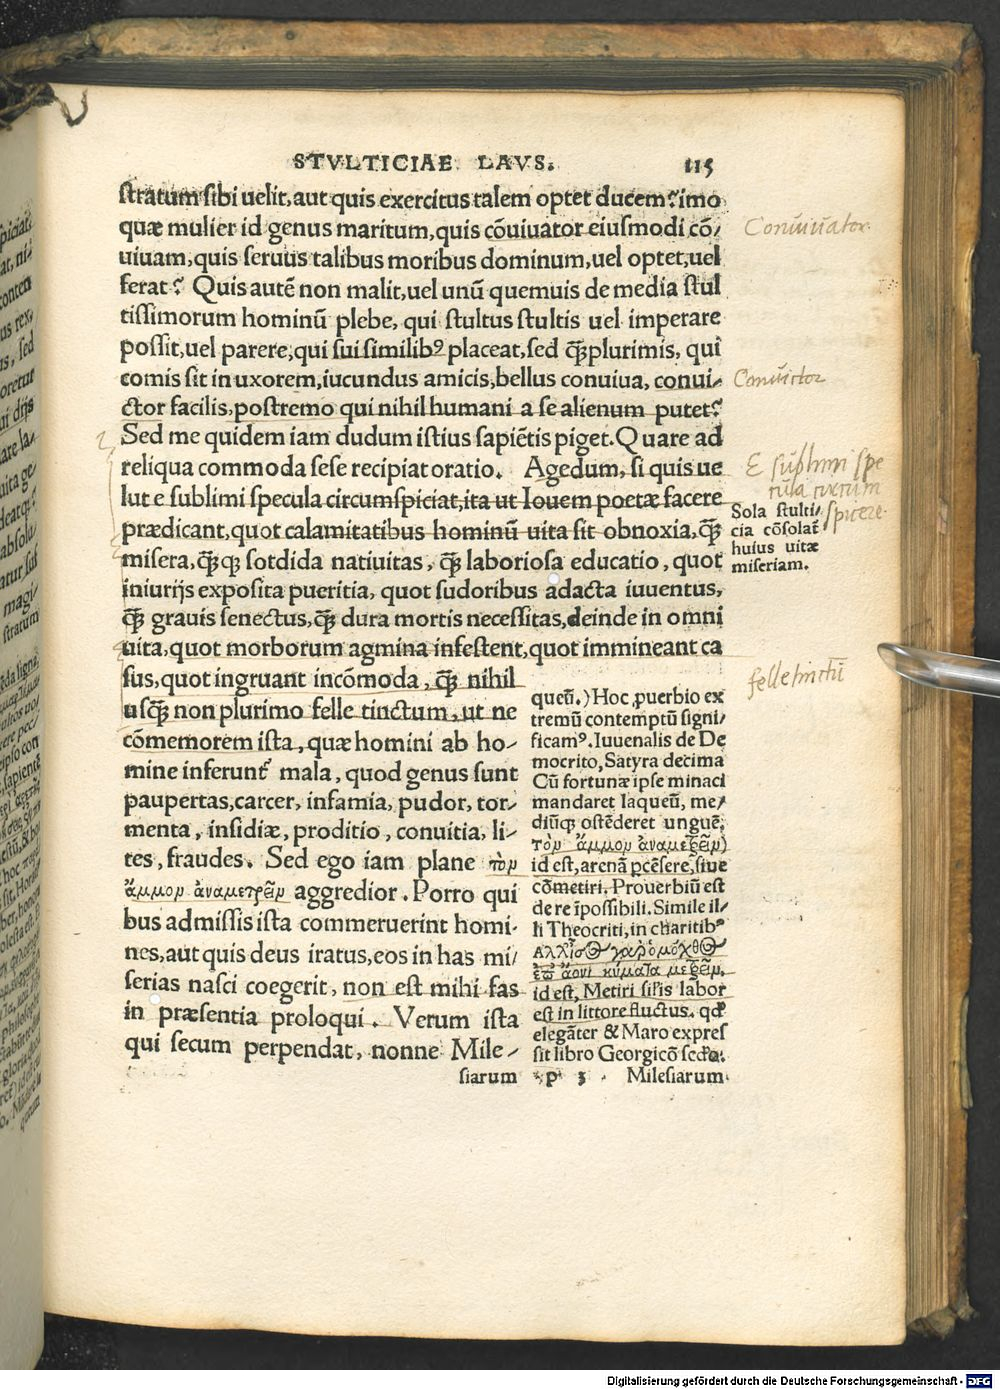 STVLTICIAE LAVS. 115
stratum sibi uelit, aut quis exercitus talem optet ducem? imo
quæ mulier id genus maritum, quis cōuiuator eiusmodi cō/
uiuam, quis seruus talibus moribus dominum, uel optet, uel
ferat? Quis autē non malit, uel unū quemuis de media stul
tissimorum hominū plebe, qui stultus stultis uel imperare
possit, uel parere, qui sui similibꝰ placeat, sed q̄ȝ plurimis, qui
comis sit in uxorem, iucundus amicis, bellus conuiua, conui/
ctor facilis, postremo qui nihil humani a se alienum putet?
Sed me quidem iam dudum istius sapiētis piget. Quare ad
reliqua commoda sese recipiat oratio. Agedum, si quis ue
lut e sublimi specula circumspiciat, ita ut Iouem poetæ facere
prædicant, quot calamitatibus hominū uita sit obnoxia, q̄ȝ
misera, q̄ȝ qȝ sotdida natiuitas, q̄ȝ laboriosa educatio, quot
iniurijs exposita pueritia, quot sudoribus adacta iuuentus,
q̄ȝ grauis senectus, q̄ȝ dura mortis necessitas, deinde in omni
uita, quot morborum agmina infestent, quot immineant ca
sus, quot ingruant incōmoda, q̄ȝ nihil
usq̄ȝ non plurimo felle tinctum, ut ne
cōmemorem ista, quæ homini ab ho/
mine inferunt᷑ mala, quod genus sunt
paupertas, carcer, infamia, pudor, tor/
menta, insidiæ, proditio, conuitia, li/
tes, fraudes. Sed ego iam plane τὸν
ἄμμον ἀναμετρεῖν aggredior. Porro qui
bus admissis ista commeruerint homi/
nes, aut quis deus iratus, eos in has mi/
serias nasci coegerit, non est mihi fas
in præsentia proloqui. Verum ista
qui secum perpendat, nonne Mile/
siarum
Conuiuator
Conuictor
E sublimi spe
cula circum
spicere
Sola stulti/
cia cōsolat᷑
huius uitæ
miseriam.
felle tinctū
queū.) Hoc ꝓuerbio ex
tremū contemptū signi/
ficamꝰ. Iuuenalis de De
mocrito, Satyra decima
Cū fortunæ ipse minaci
mandaret laqueū, me/
diūqȝ ostēderet unguē.
τὸν ἄμμον ἀναμετρεῖν)
id est, arenā siue
cōmetiri. Prouerbiū est
de re īpossibili. Simile il/
li Theocriti, in charitibꝰ
Ἀλλ' ἶσος γὰρ ὁ μόχθος
ἐπ' ᾀόνι κύματα μετρεῖν,
id est, Metiri silis labor
est in littore fluctus. qd̄
elegāter & Maro expres
sit libro Georgicō
p 3 Milesiarum
Digitalisierung gefördert durch die Deutsche Forschungsgemeinschaft - DFG